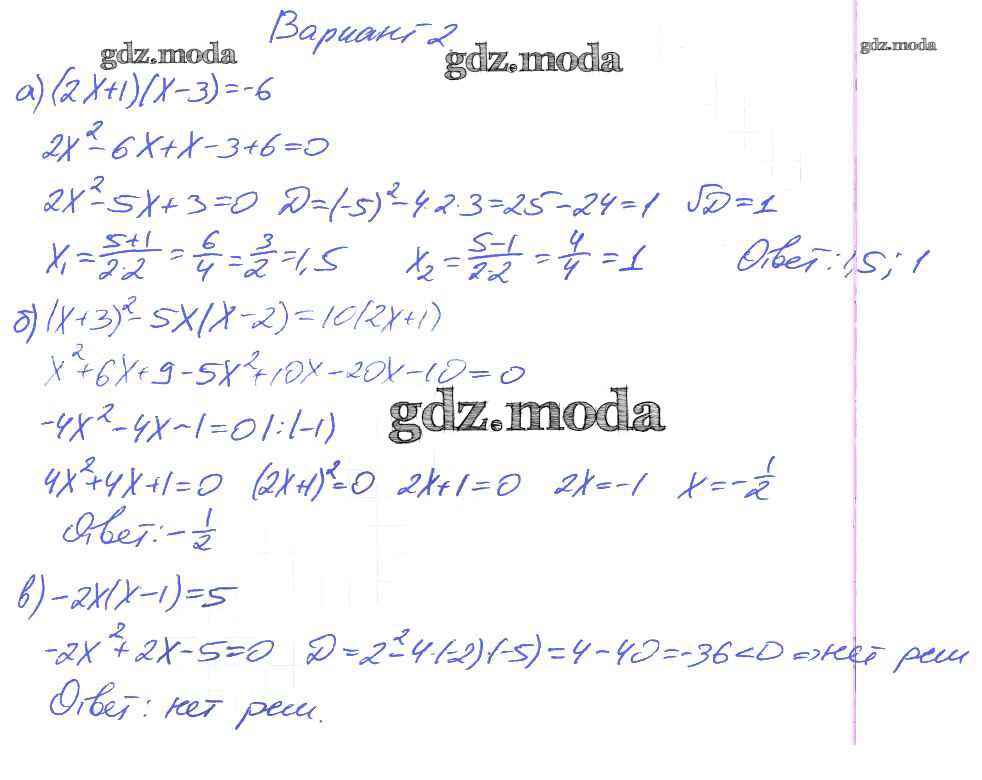 Вариант 2
gdz.moda gdz.moda gdz.moda
а) (2x+1)(x-3)=-6
2x²-6x+x-3+6=0
2x²-5x+3=0 D=(-5)²-4·2·3=25-24=1 √D=1
x₁=(5+1)/(2·2)=6/4=3/2=1,5 x₂=(5-1)/(2·2)=4/4=1 Ответ: 1,5; 1
б) (x+3)²-5x(x-2)=10(2x+1)
x²+6x+9-5x²+10x-20x-10=0
gdz.moda
-4x²-4x-1=0 |:(-1)
4x²+4x+1=0 (2x+1)²=0 2x+1=0 2x=-1 x=-1/2
Ответ: -1/2
в) -2x(x-1)=5
-2x²+2x-5=0 D=2²-4·(-2)·(-5)=4-40=-36<0 => нет реш
Ответ: нет реш.